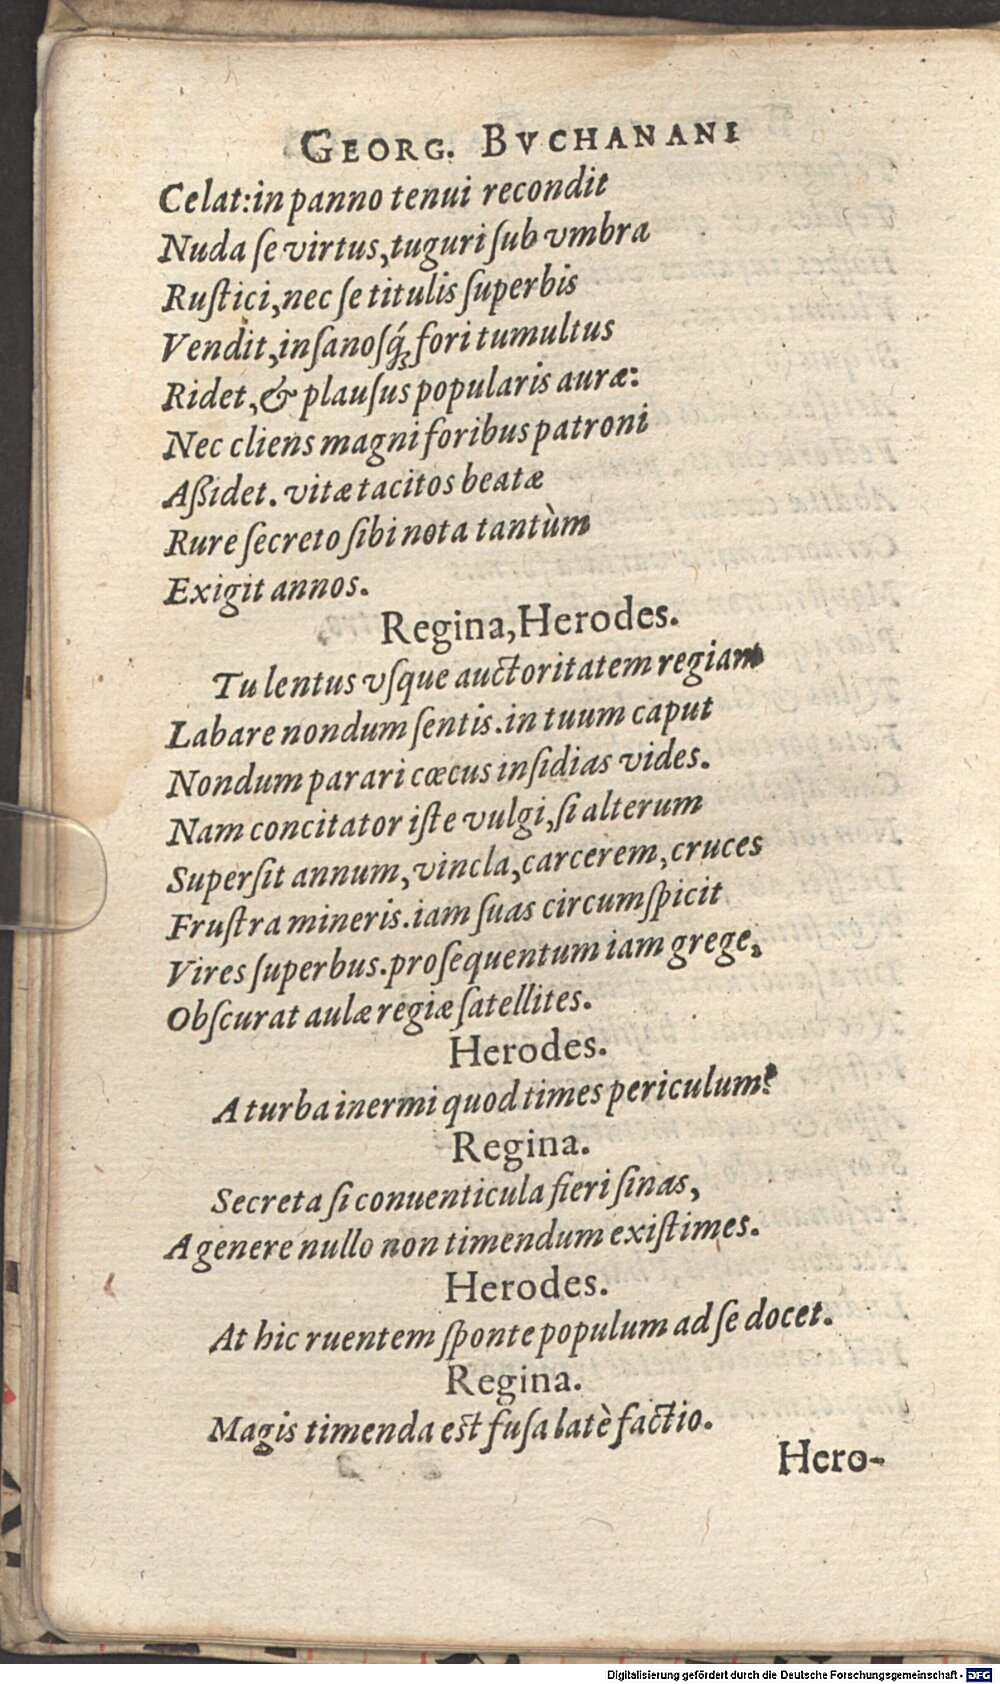 GEORG. BVCHANANI
Celat: in panno tenui recondit
Nuda ſe virtus, tuguri ſub vmbra
Ruſtici, nec ſe titulis ſuperbis
Vendit, inſanoſq́ꝫ fori tumultus
Ridet, & plauſus popularis auræ:
Nec cliens magni foribus patroni
Aßidet. vitæ tacitos beatæ
Rure ſecreto ſibi nota tantùm
Exigit annos.
Regina, Herodes.
Tu lentus vſque auctoritatem regiam
Labare nondum ſentis. in tuum caput
Nondum parari cœcus inſidias vides.
Nam concitator iſte vulgi, ſi alterum
Superſit annum, vincla, carcerem, cruces
Fruſtra mineris. iam ſuas circumſpicit
Vires ſuperbus. proſequentum iam grege,
Obſcurat aulæ regiæ ſatellites.
Herodes.
A turba inermi quod times periculum?
Regina.
Secreta ſi conuenticula fieri ſinas,
A genere nullo non timendum exiſtimes.
Herodes.
At hic ruentem ſponte populum ad ſe docet.
Regina.
Magis timenda est fuſa latè factio.
Hero-
Digitalisierung gefördert durch die Deutsche Forschungsgemeinschaft - DFG